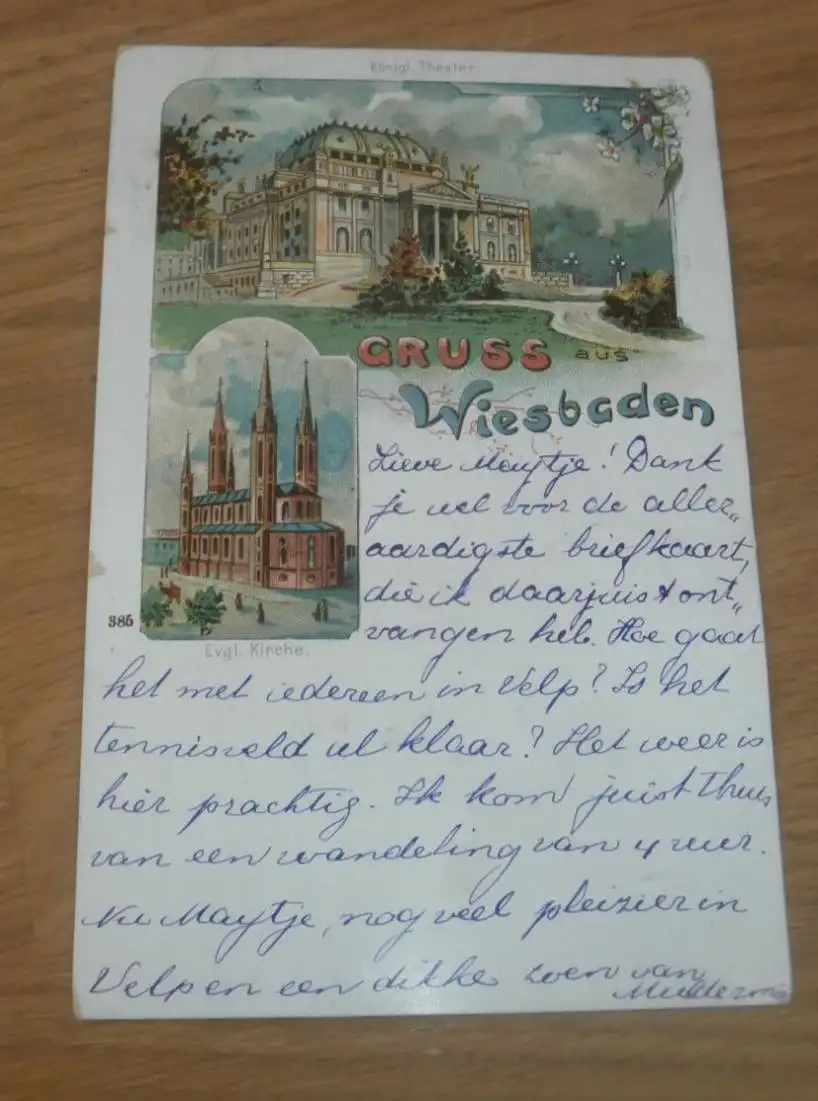 Königl. Theater.
GRUSS aus
Wiesbaden
Lieve Maytje! Dank
je wel voor de aller„
aardigste briefkaart,
die ik daarjuist ont„
vangen heb. Hoe gaat
385
Evgl. Kirche.
het met iedereen in Velp? Is het
tennisveld al klaar? Het weer is
hier prachtig. Ik kom juist thuis
van een wandeling van 4 uur.
Nu Maytje, nog veel pleizier in
Velp en een dikke zoen van